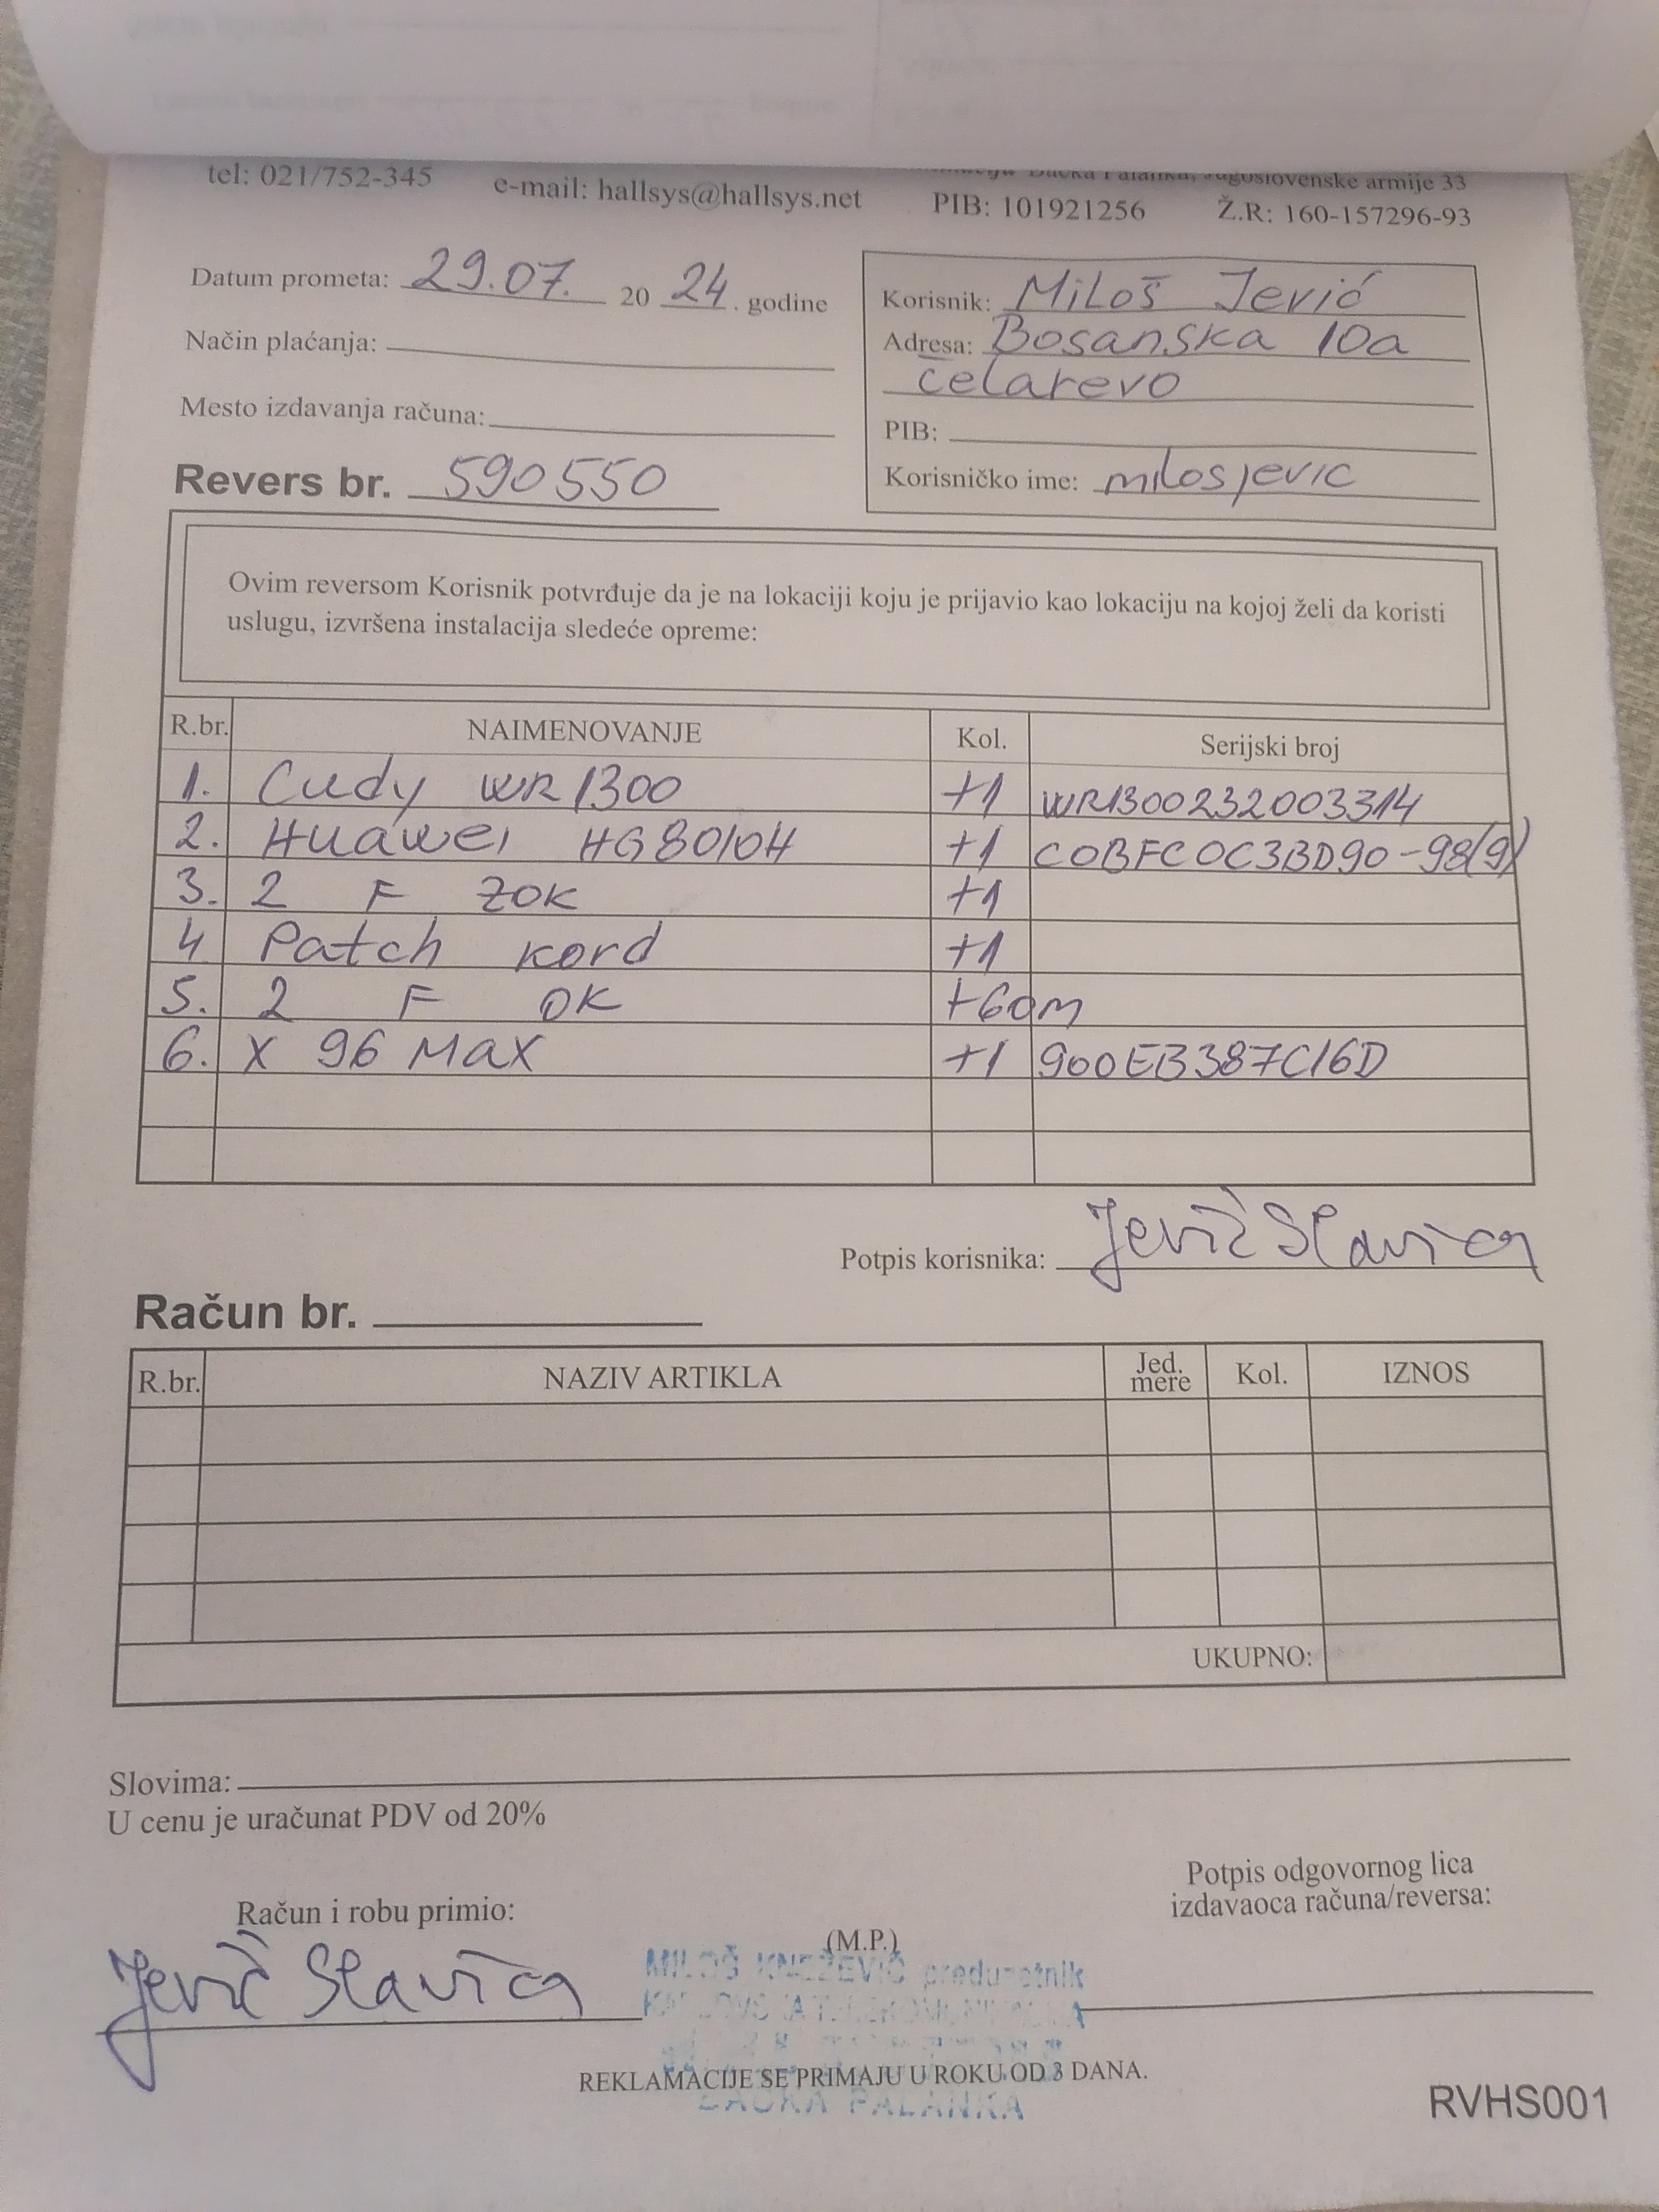 tel: 021/752-345 e-mail: hallsys@hallsys.net Bačka Palanka, Jugoslovenske armije 33
PIB: 101921256 Ž.R: 160-157296-93
Datum prometa: 29.07. 20 24. godine
Način plaćanja:
Mesto izdavanja računa:
Revers br. 590550
Korisnik: Miloš Jević
Adresa: Bosanska 10a
Čelarevo
PIB:
Korisničko ime: milosjevic
Ovim reversom Korisnik potvrđuje da je na lokaciji koju je prijavio kao lokaciju na kojoj želi da koristi
uslugu, izvršena instalacija sledeće opreme:
R.br. NAIMENOVANJE Kol. Serijski broj
1. Cudy WR1300 +1 WR1300232003314
2. Huawei HG8010H +1 C0BFC0C3BD90-98(9)
3. 2 F ZOK +1
4 Patch kord +1
5. 2 F OK +60m
6. X 96 Max +1 900EB387C16D
Potpis korisnika: Jević Slavica
Račun br.
R.br. NAZIV ARTIKLA Jed. mere Kol. IZNOS
UKUPNO:
Slovima:
U cenu je uračunat PDV od 20%
Račun i robu primio:
Jević Slavica
(M.P.)
MILOŠ KNEŽEVIĆ preduzetnik
Potpis odgovornog lica
izdavaoca računa/reversa:
REKLAMACIJE SE PRIMAJU U ROKU OD 3 DANA.
BAČKA PALANKA
RVHS001